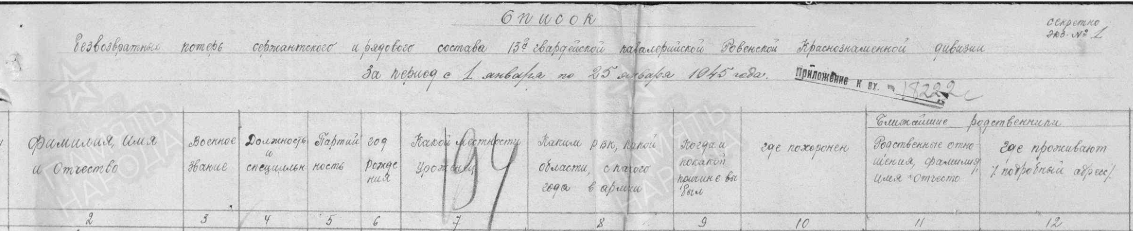 Список
Секретно
экз. № 1
Безвозвратных потерь сержантского и рядового состава 13й гвардейской кавалерийской Ровенской Краснознаменной дивизии
За период с 1 января по 25 января 1945 года.
Приложение к вх. 18222с
Фамилия, имя и Отчество
Военное звание
Должность и специальн
Партийность
год рождения
Какой местности Уроженец
Каким РВК, какой области, с какого года в армии
Когда и по какой причине выбыл
где похоронен
Ближайшие родственники
Родственные отношения, фамилия, имя отчество
Где проживают /подробный адрес/
194
2 3 4 5 6 7 8 9 10 11 12
ПАМЯТЬ НАРОДА
ПАМЯТЬ НАРОДА
ПАМЯТЬ НАРОДА